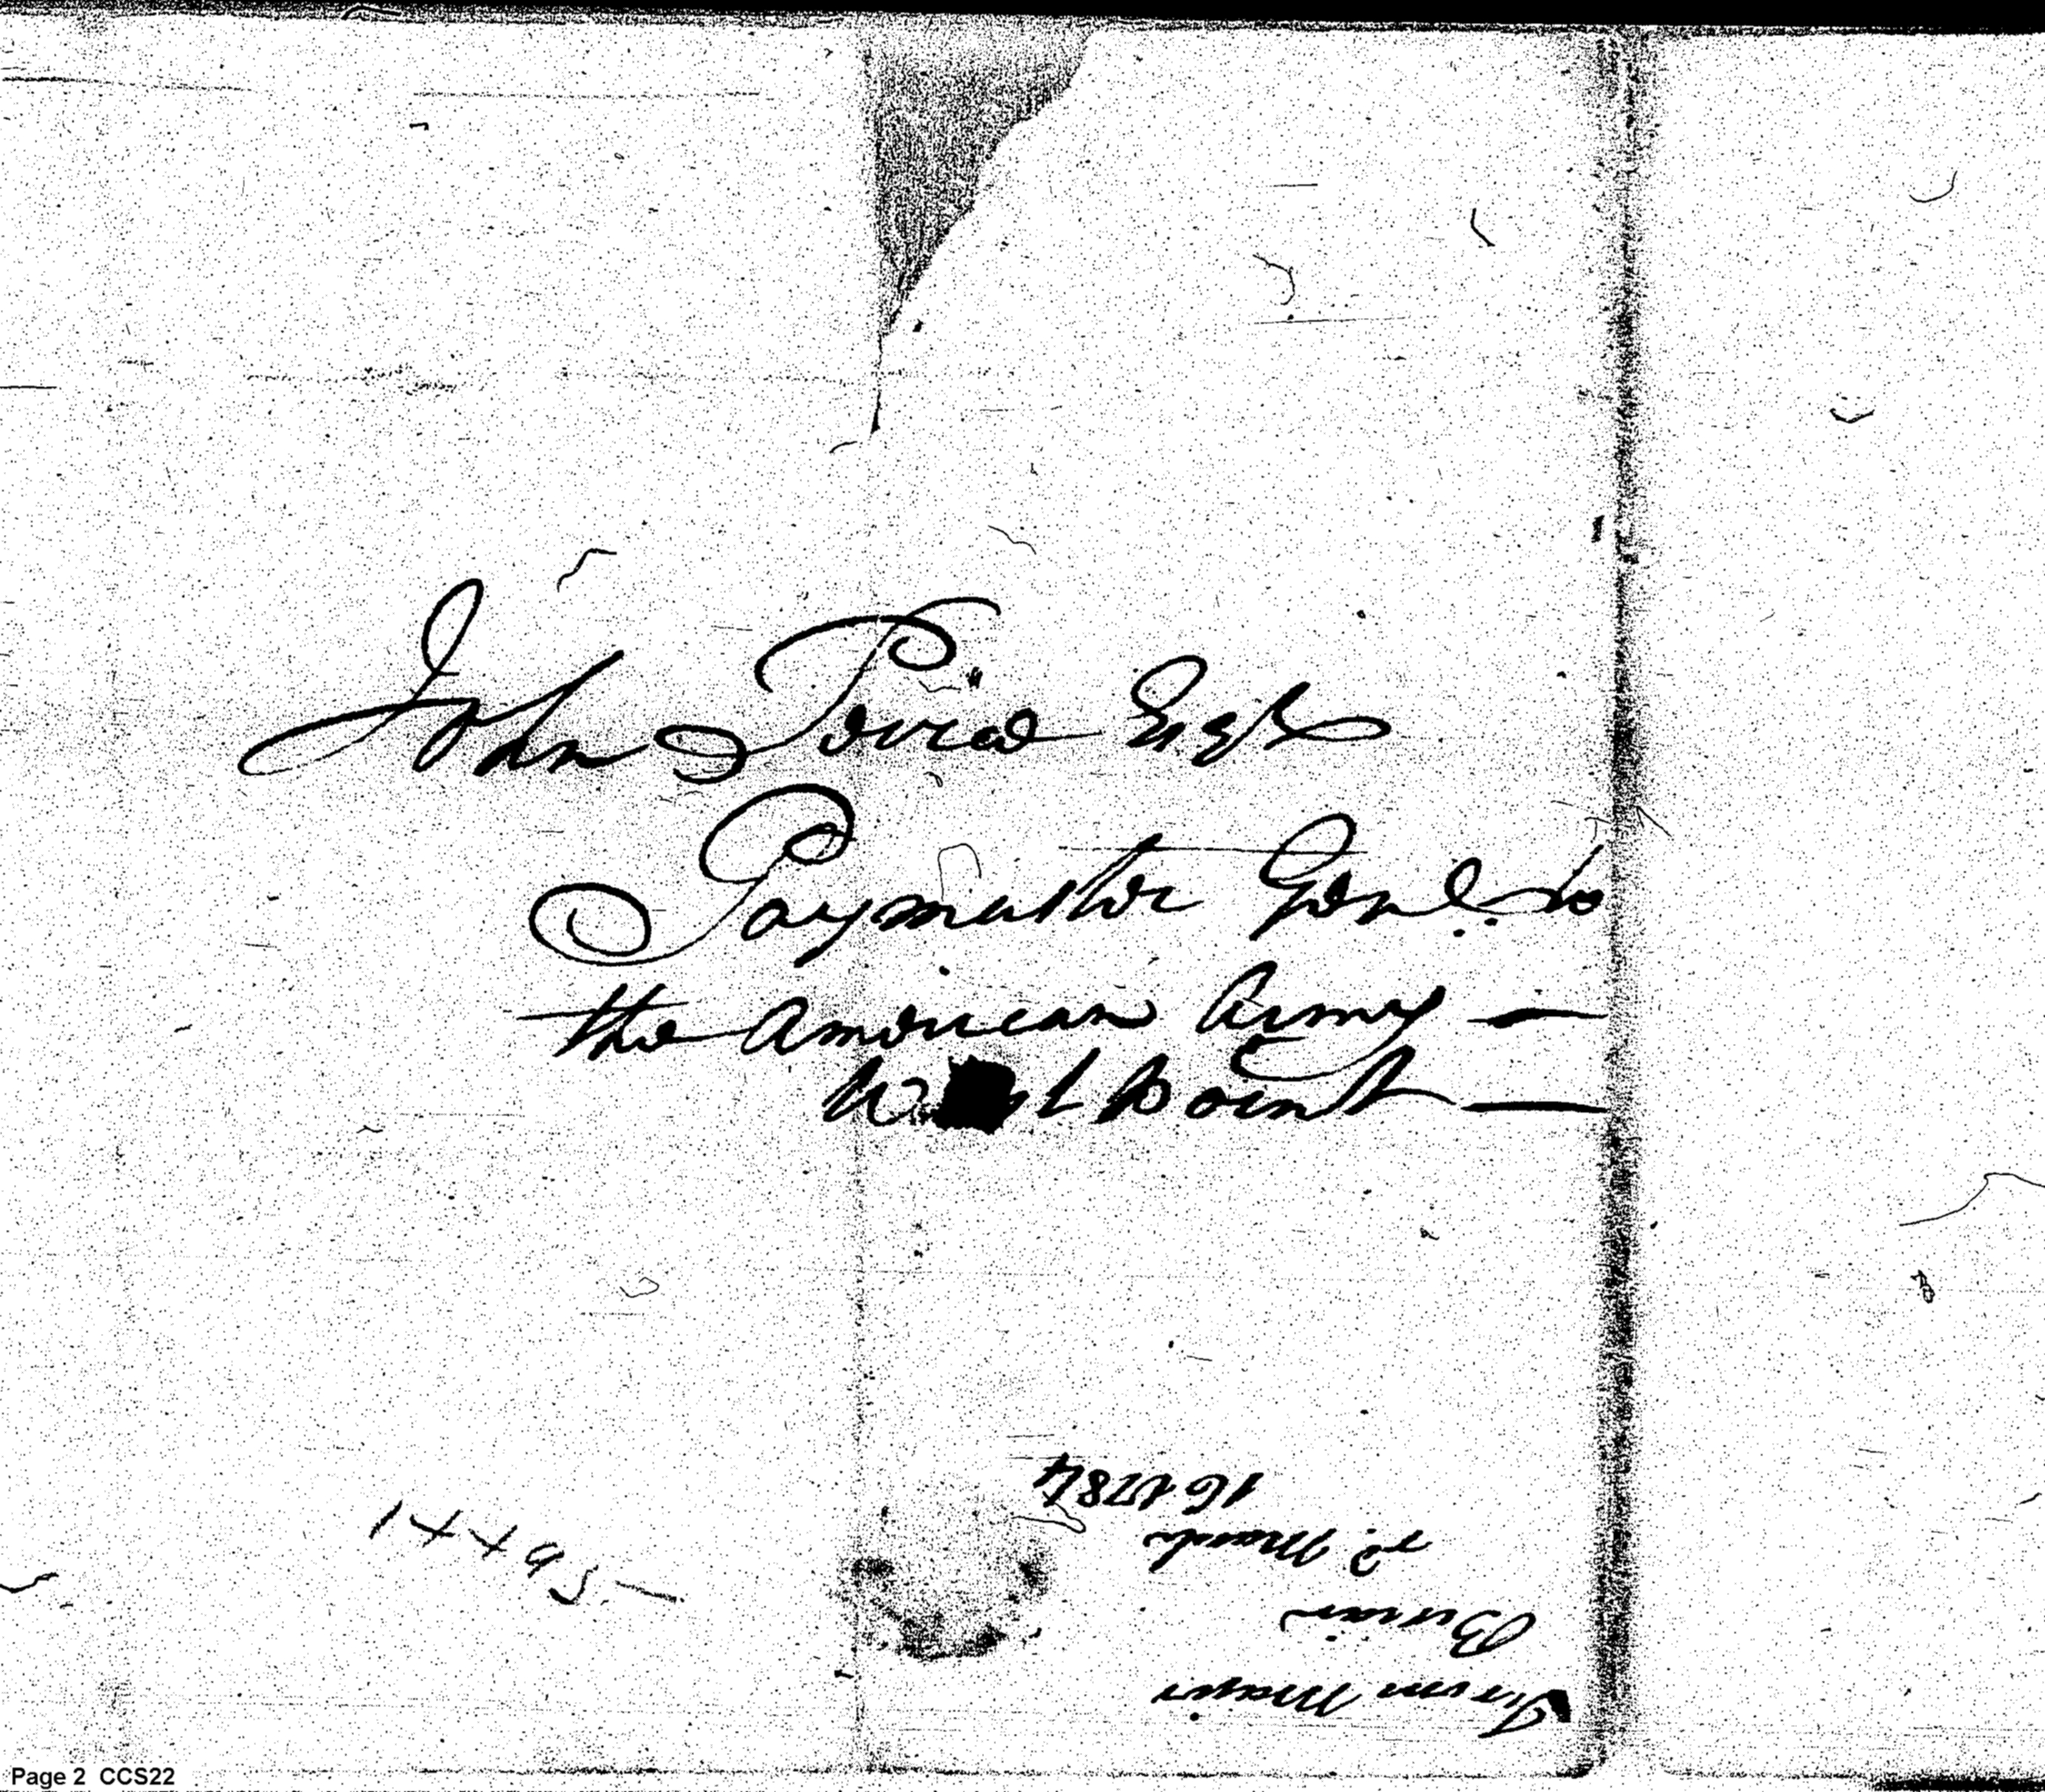 John Pierce Esqr
Paymaster Genl. to
the American Army —
West Point —
14495 —
From Major
Burnir
rd. March
16 1784
Page 2 CCS22